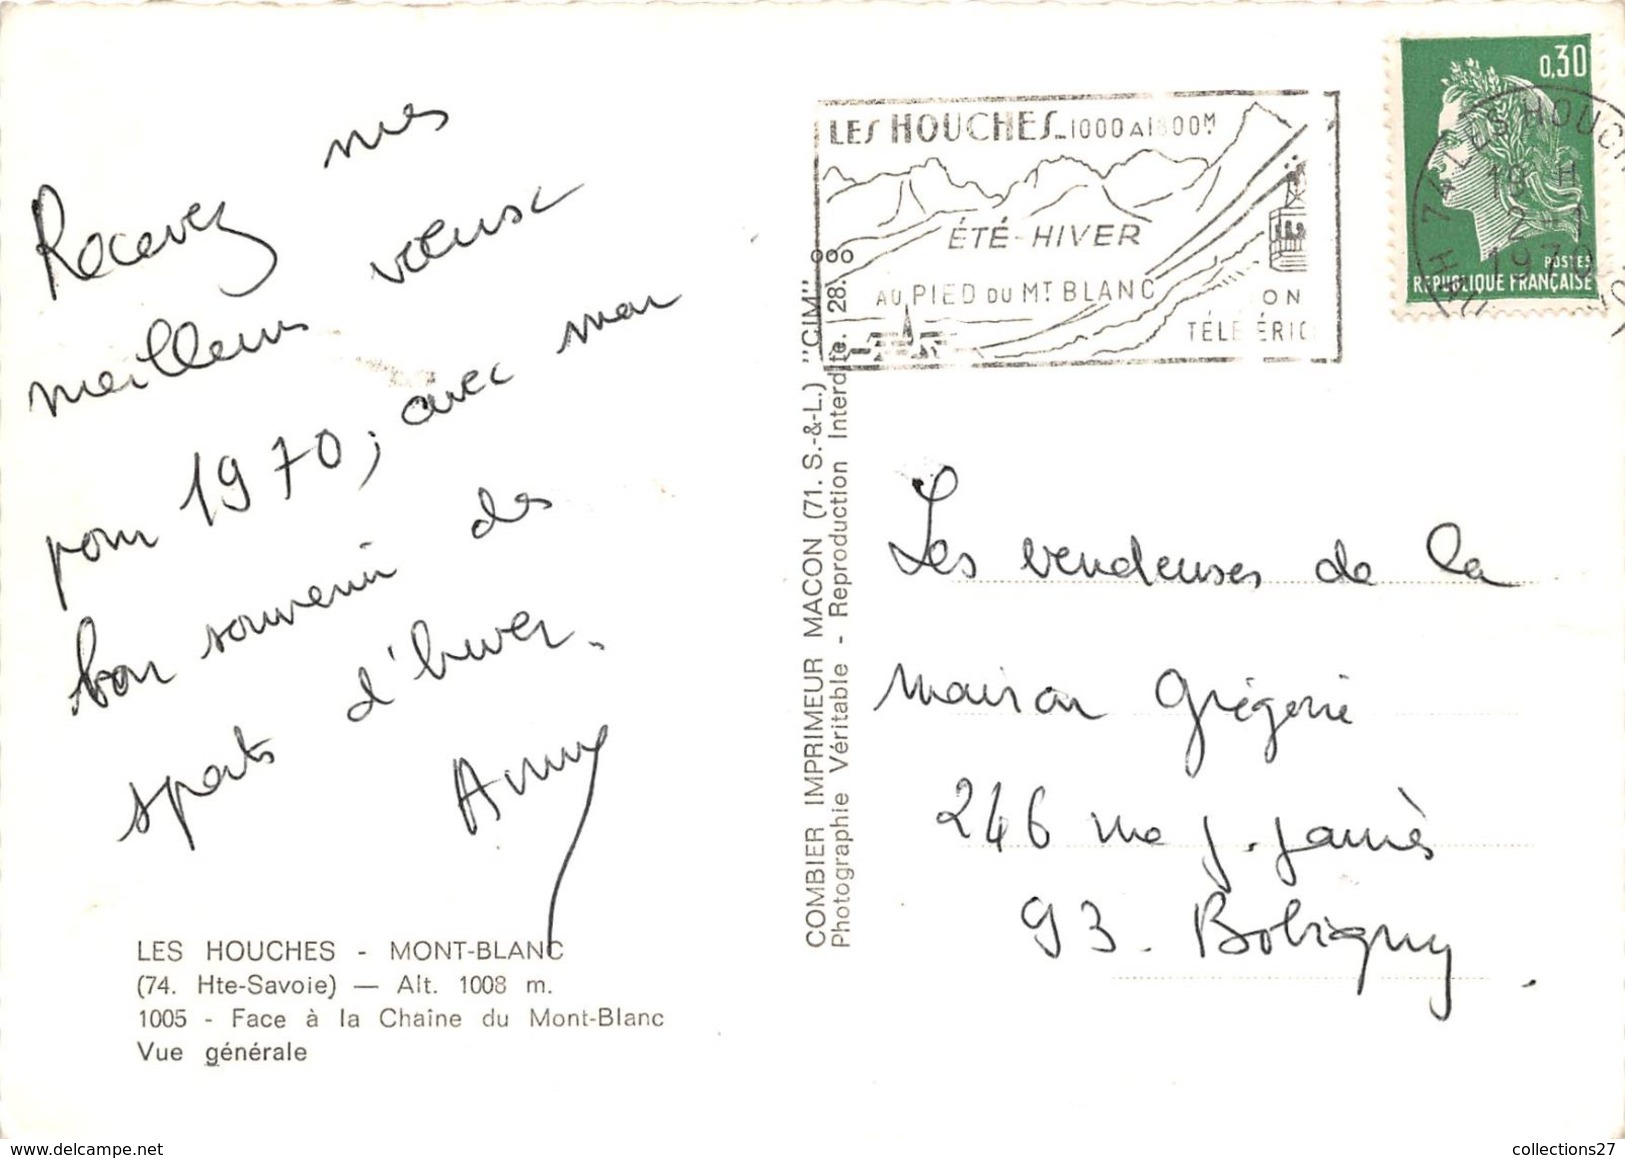 Recevez mes
meilleurs vœux
pour 1970, avec mon
bon souvenir des
sports d'hiver.
Anny
LES HOUCHES - MONT-BLANC
(74. Hte-Savoie) — Alt. 1008 m.
1005 - Face à la Chaîne du Mont-Blanc
Vue générale
COMBIER IMPRIMEUR MACON (71. S.-&-L.) "CIM"
Photographie Véritable - Reproduction Interdite. 28.
LES HOUCHES_1000 A 1800M
ÉTÉ-HIVER
AU PIED DU MT BLANC
0,30
POSTES
REPUBLIQUE FRANÇAISE
74 LES HOUCH
18 H
2-1
1970
Les vendeuses de la
maison Grégorie
246 rue J. Jaurès
93. Bobigny.
delcampe.net
collections27